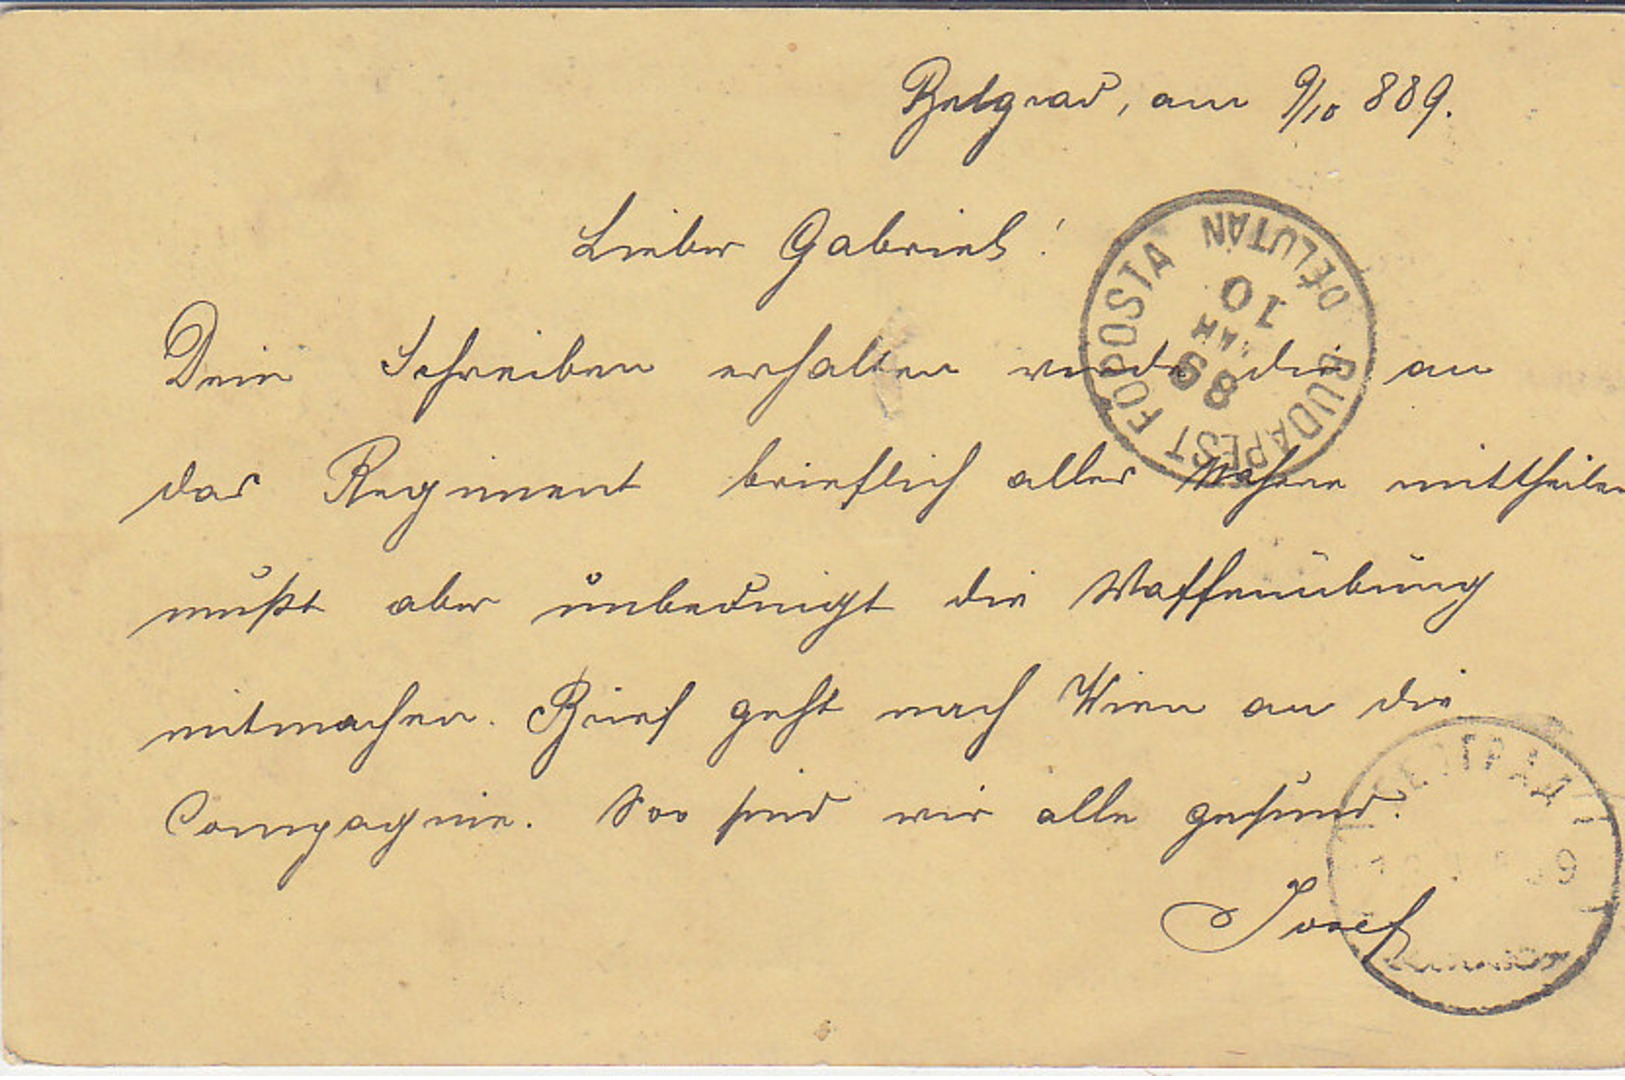 Belgrad, am 9/10 889.
Lieber Gabriel!
Dein Schreiben erhalten werde dir an
das Regiment brieflich alles Nähere mittheilen
mußt aber unbedingt die Waffenübung
mitmachen. Brief geht nach Wien an die
Compagnie. sind wir alle gesund.
Josef
BUDAPEST FŐPOSTA DÉLUTÁN
10
89